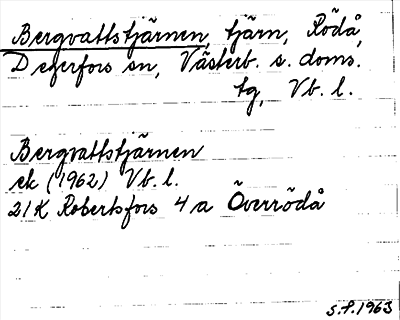 Bergvattstjärnen, tjärn, Rödå,
Degerfors sn, Västerb. s. doms.
tg, Vb. l.
Bergvattstjärnen
ek (1962) Vb. l.
21K Robertsfors 4a Överrödå
S.F. 1963